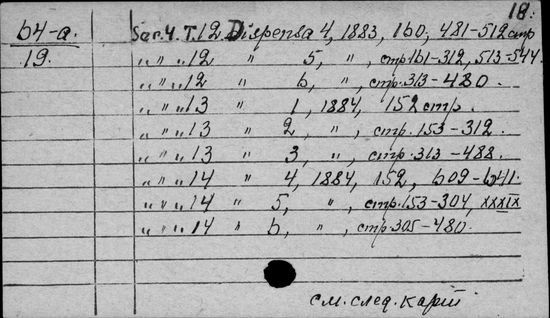 18.
64-a. Ser. 4. T. 12 Dispensa 4, 1883, 160, 481-512 стр
19. „ „ „ 12 „ 5, „ , стр. 161-312, 513-544.
„ „ „ 12 „ 6, „ , стр. 313-480.
„ „ „ 13 „ 1, 1884, 152 стр.
„ „ „ 13 „ 2, „ , стр. 153-312.
„ „ „ 13 „ 3, „ , стр. 313-488.
„ „ „ 14 „ 4, 1884, 152, 609-641.
„ „ „ 14 „ 5, „ , стр. 153-304, XXXIX
„ „ „ 14 „ 6, „ , стр. 305-480.
см. след. карт